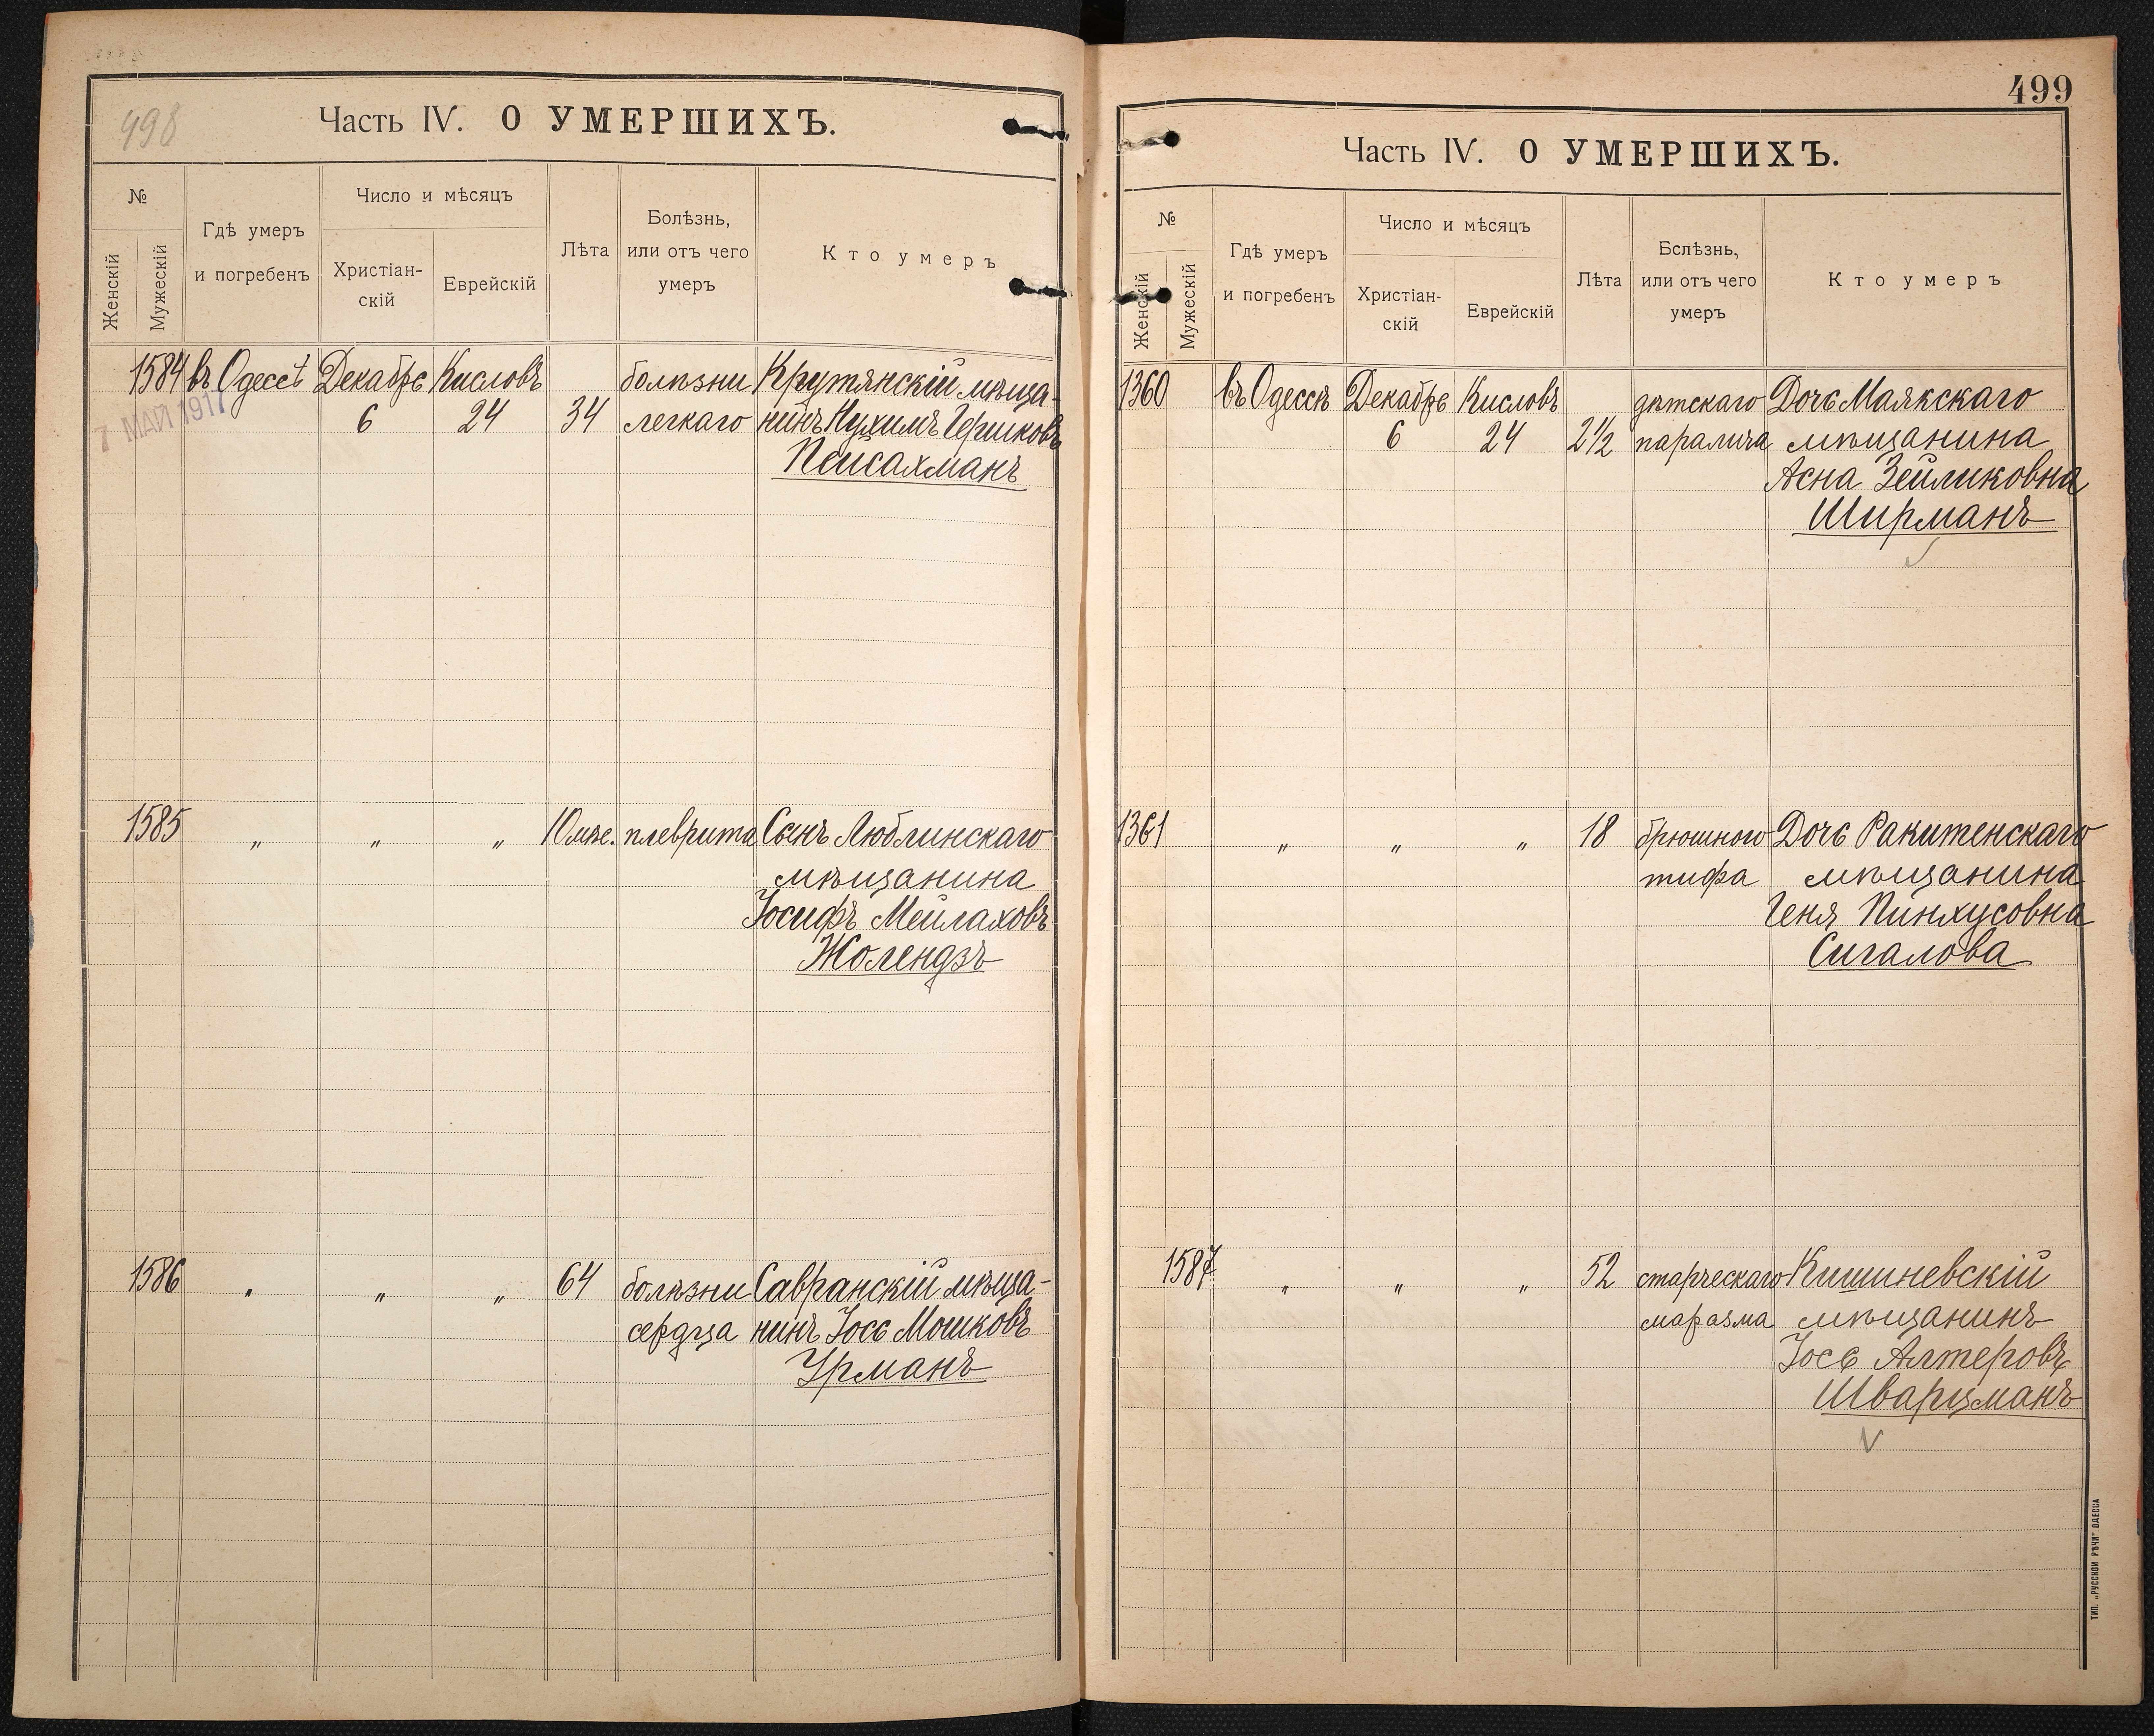 498
Часть IV. О УМЕРШИХЪ.
№
Женскій
Мужескій
Гдѣ умеръ
и погребенъ
Число и мѣсяцъ
Христіан-
скій
Еврейскій
Лѣта
Болѣзнь,
или отъ чего
умеръ
Кто умеръ
1584 въ Одессѣ Декабрь Кисловъ болѣзни Крутянскій мѣща-
7 МАЙ 1917
6 24 34 легкаго нинъ Нухимъ Гершковъ
Пейсахманъ
1585 „ „ „ 10 мѣс. плеврита Сынъ Люблинскаго
мѣщанина
Іосифъ Мейлаховъ
Жолендзь
1586 „ „ „ 64 болѣзни Савранскій мѣща-
сердца нинъ Іось Мошковъ
Урманъ
499
Часть IV. О УМЕРШИХЪ.
№
Женскій
Мужескій
Гдѣ умеръ
и погребенъ
Число и мѣсяцъ
Христіан-
скій
Еврейскій
Лѣта
Бслѣзнь,
или отъ чего
умеръ
Кто умеръ
1360 въ Одессѣ Декабрь Кисловъ дѣтскаго Дочь Маякскаго
6 24 2½ паралича мѣщанина
Асна Зейликовна
Ширманъ
1361 „ „ „ 18 брюшного Дочь Ракитенскаго
тифа мѣщанина
Геня Пинхусовна
Сигалова
1587 „ „ „ 52 старческаго Кишиневскій
маразма мѣщанинъ
Іось Алтеровъ
Шварцманъ
ТИП. „РУССКОЙ РѢЧИ" ОДЕССА